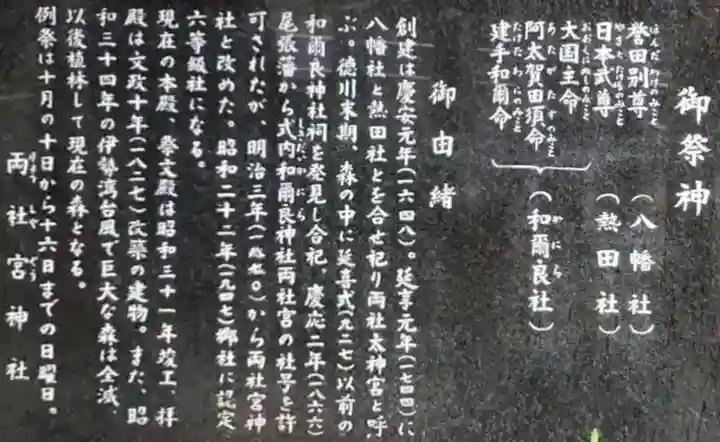 御祭神
誉田別尊（八幡社）
日本武尊（熱田社）
大国主命
阿太賀田須命（和爾良社）
建手和爾命
御由緒
創建は慶安元年（一六四八）。延享元年（一七四四）に
八幡社と熱田社とを合せ祀り両社太神宮と呼
ぶ。徳川末期、森の中に延喜式（九二七）以前の
和爾良神社祠を発見し合祀、慶応二年（一八六六）
尾張藩から式内和爾良神社両社宮の社号を許
可されたが、明治三年（一八七〇）から両社宮神
社と改めた。昭和二十二年（一九四七）郷社に認定、
六等級社になる。
現在の本殿、祭文殿は昭和三十一年竣工、拝
殿は文政十年（一八二七）改築の建物。また、昭
和三十四年の伊勢湾台風で巨大な森は全滅、
以後植林して現在の森となる。
例祭は十月の十日から十六日までの日曜日。
両社宮神社